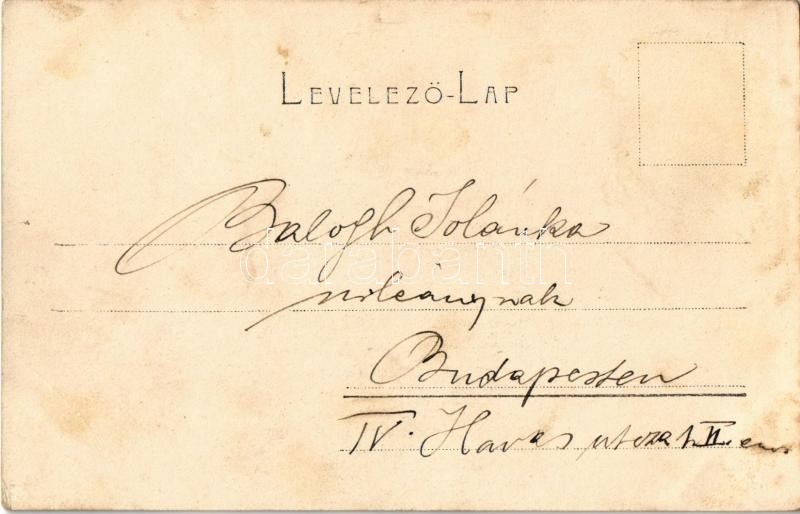 LEVELEZŐ-LAP
Balogh Jolánka
urleánynak
Budapesten
IV. Havas utcza II. em
darabanth